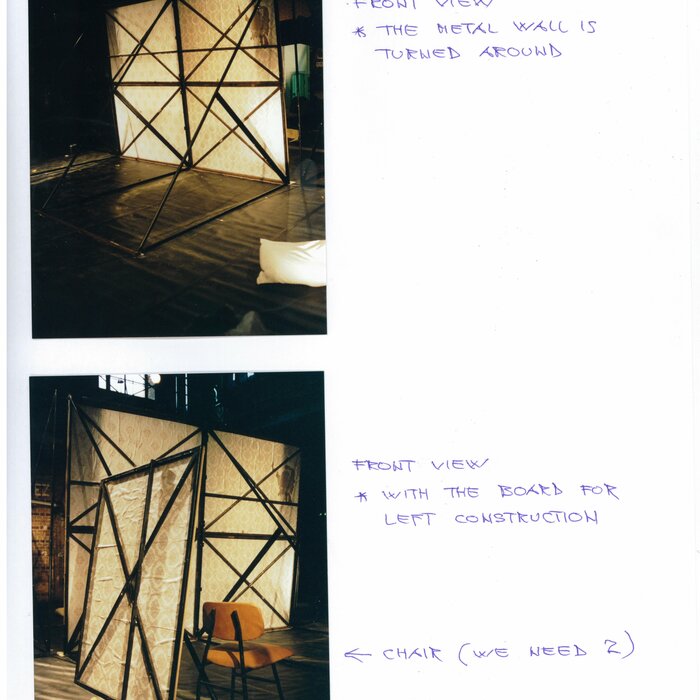 FRONT VIEW
* THE METAL WALL IS
TURNED AROUND
FRONT VIEW
* WITH THE BOARD FOR
LEFT CONSTRUCTION
← CHAIR (WE NEED 2)